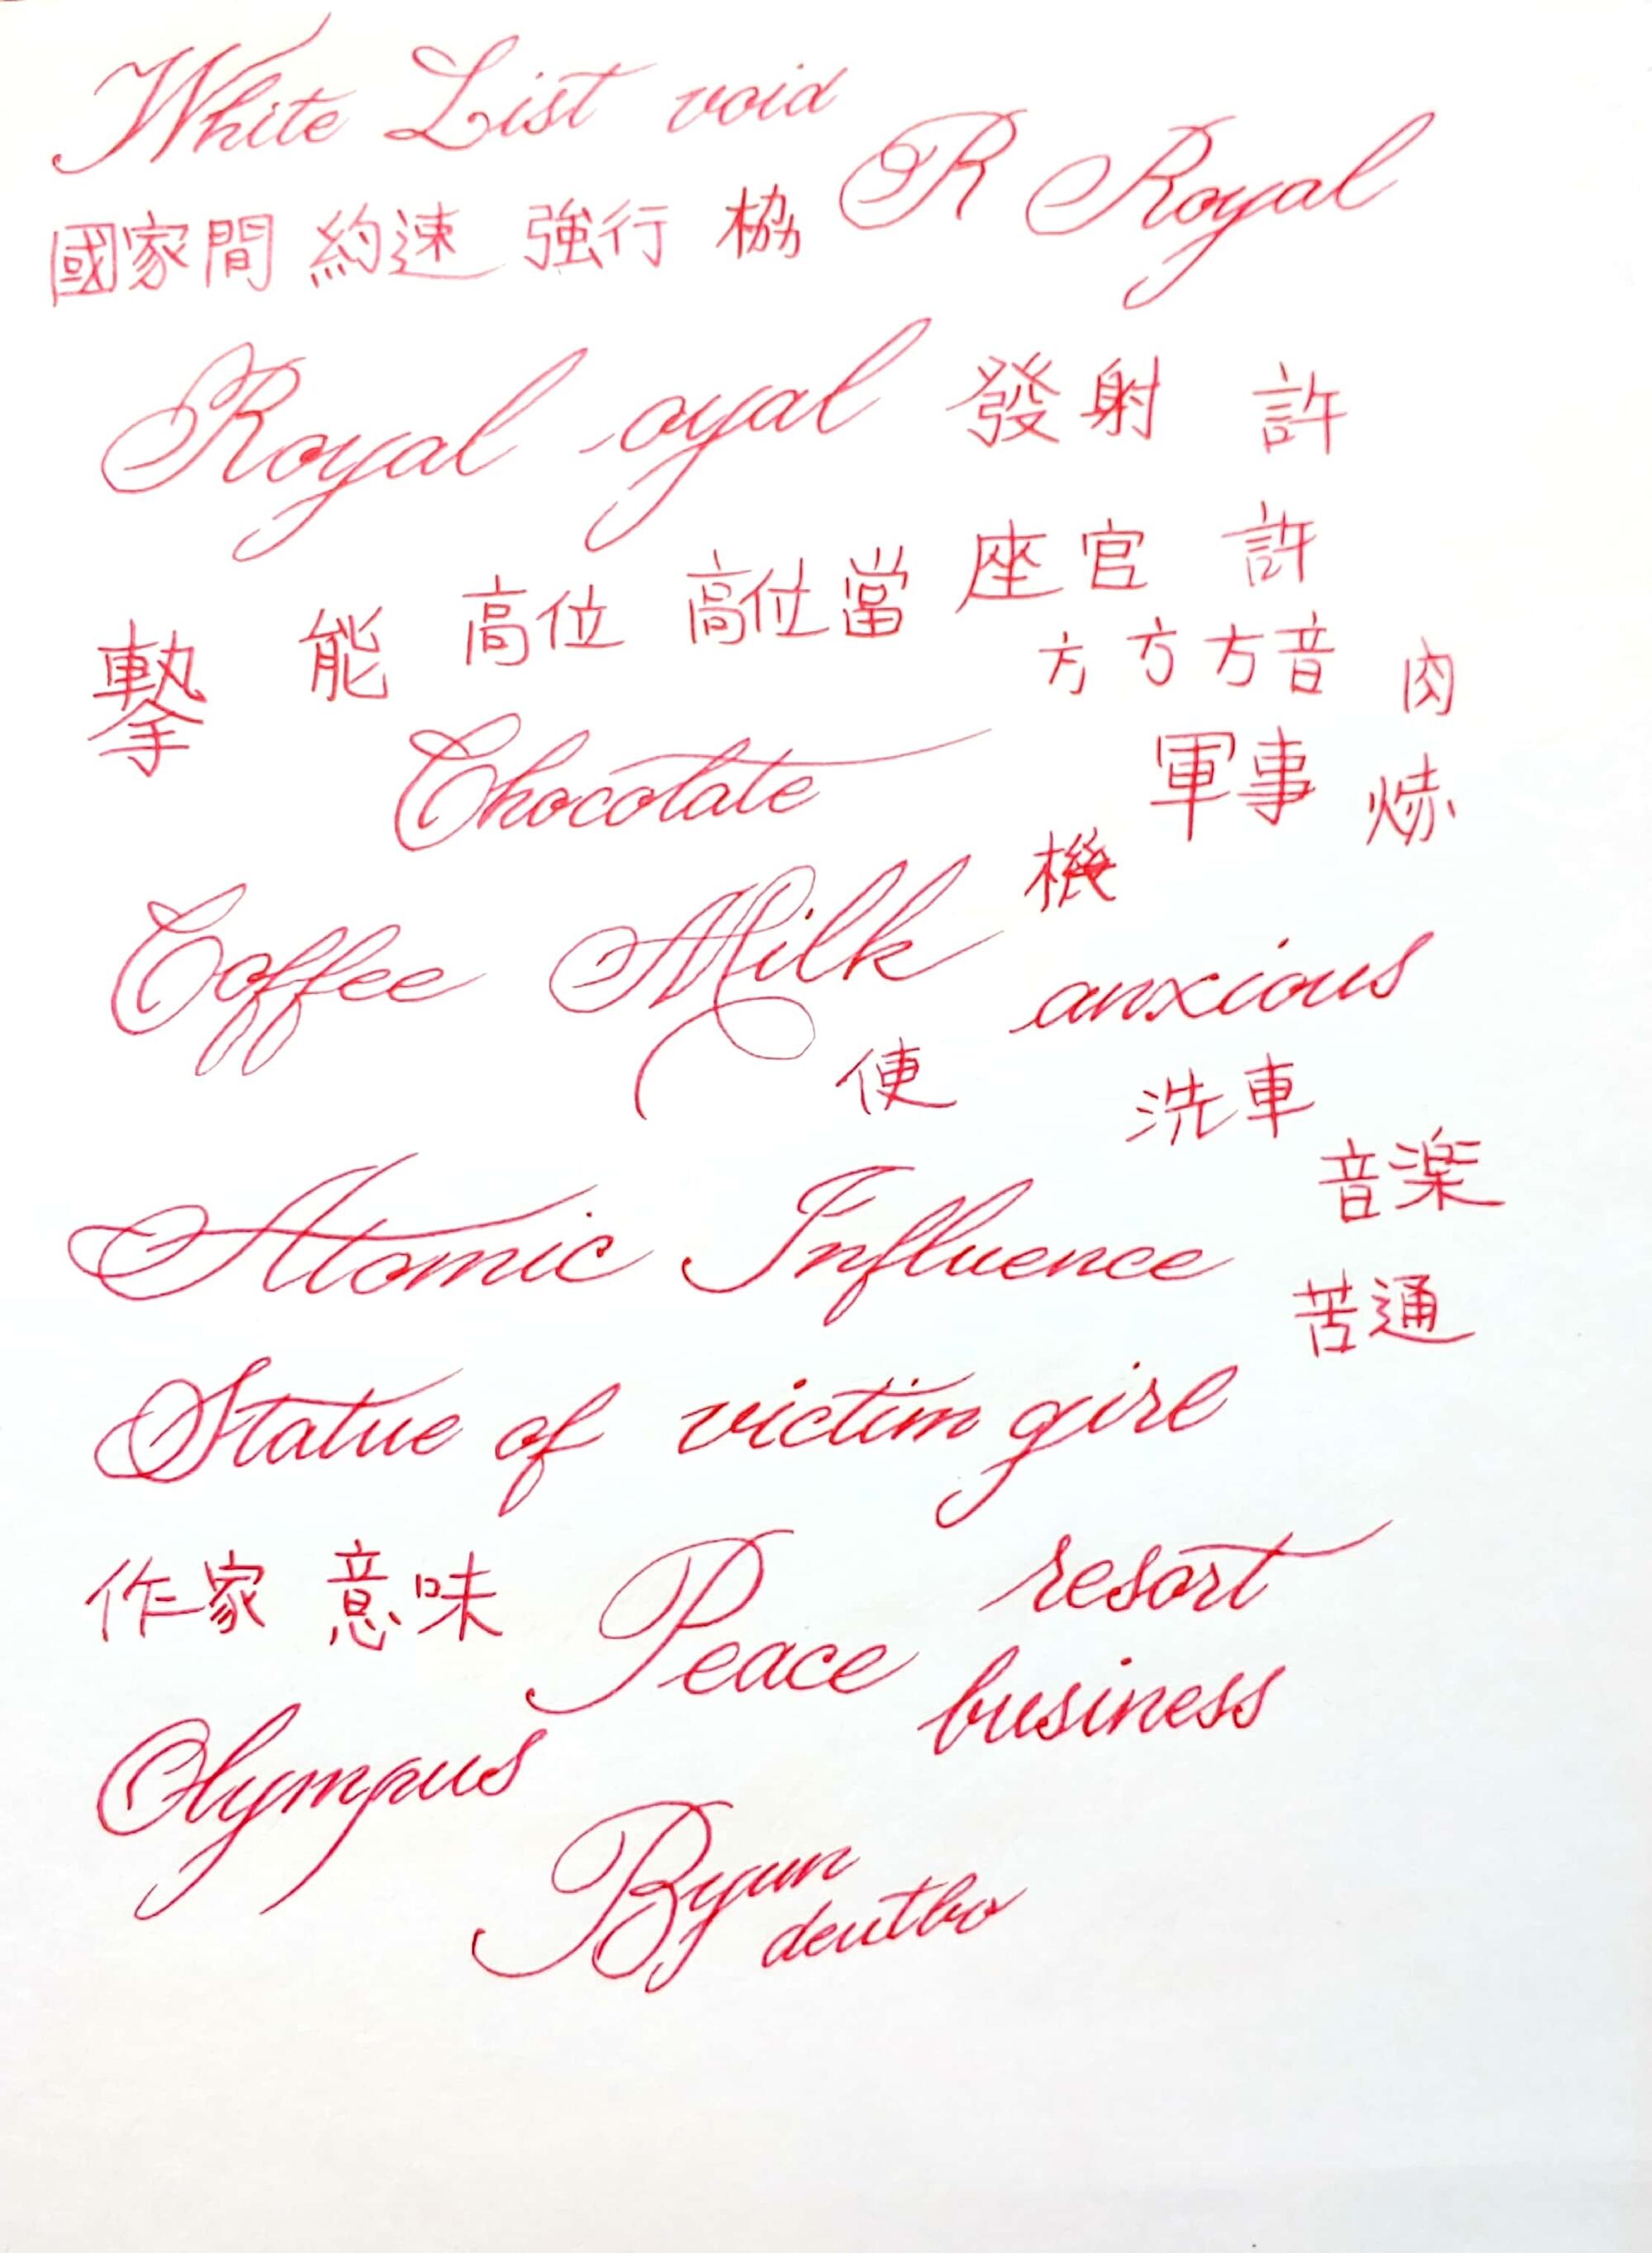 White List void
R Royal
國家間 約速 強行
Royal oyal 發射 許
座官 許
能 高位 高位當
方 方 方音 肉
Chocolate
軍事
機
Coffee Milk
anxious
便 洗車
音楽
Atomic Influence
苦通
Statue of victim girl
作家 意味 Peace resort
business
Olympus
Byun